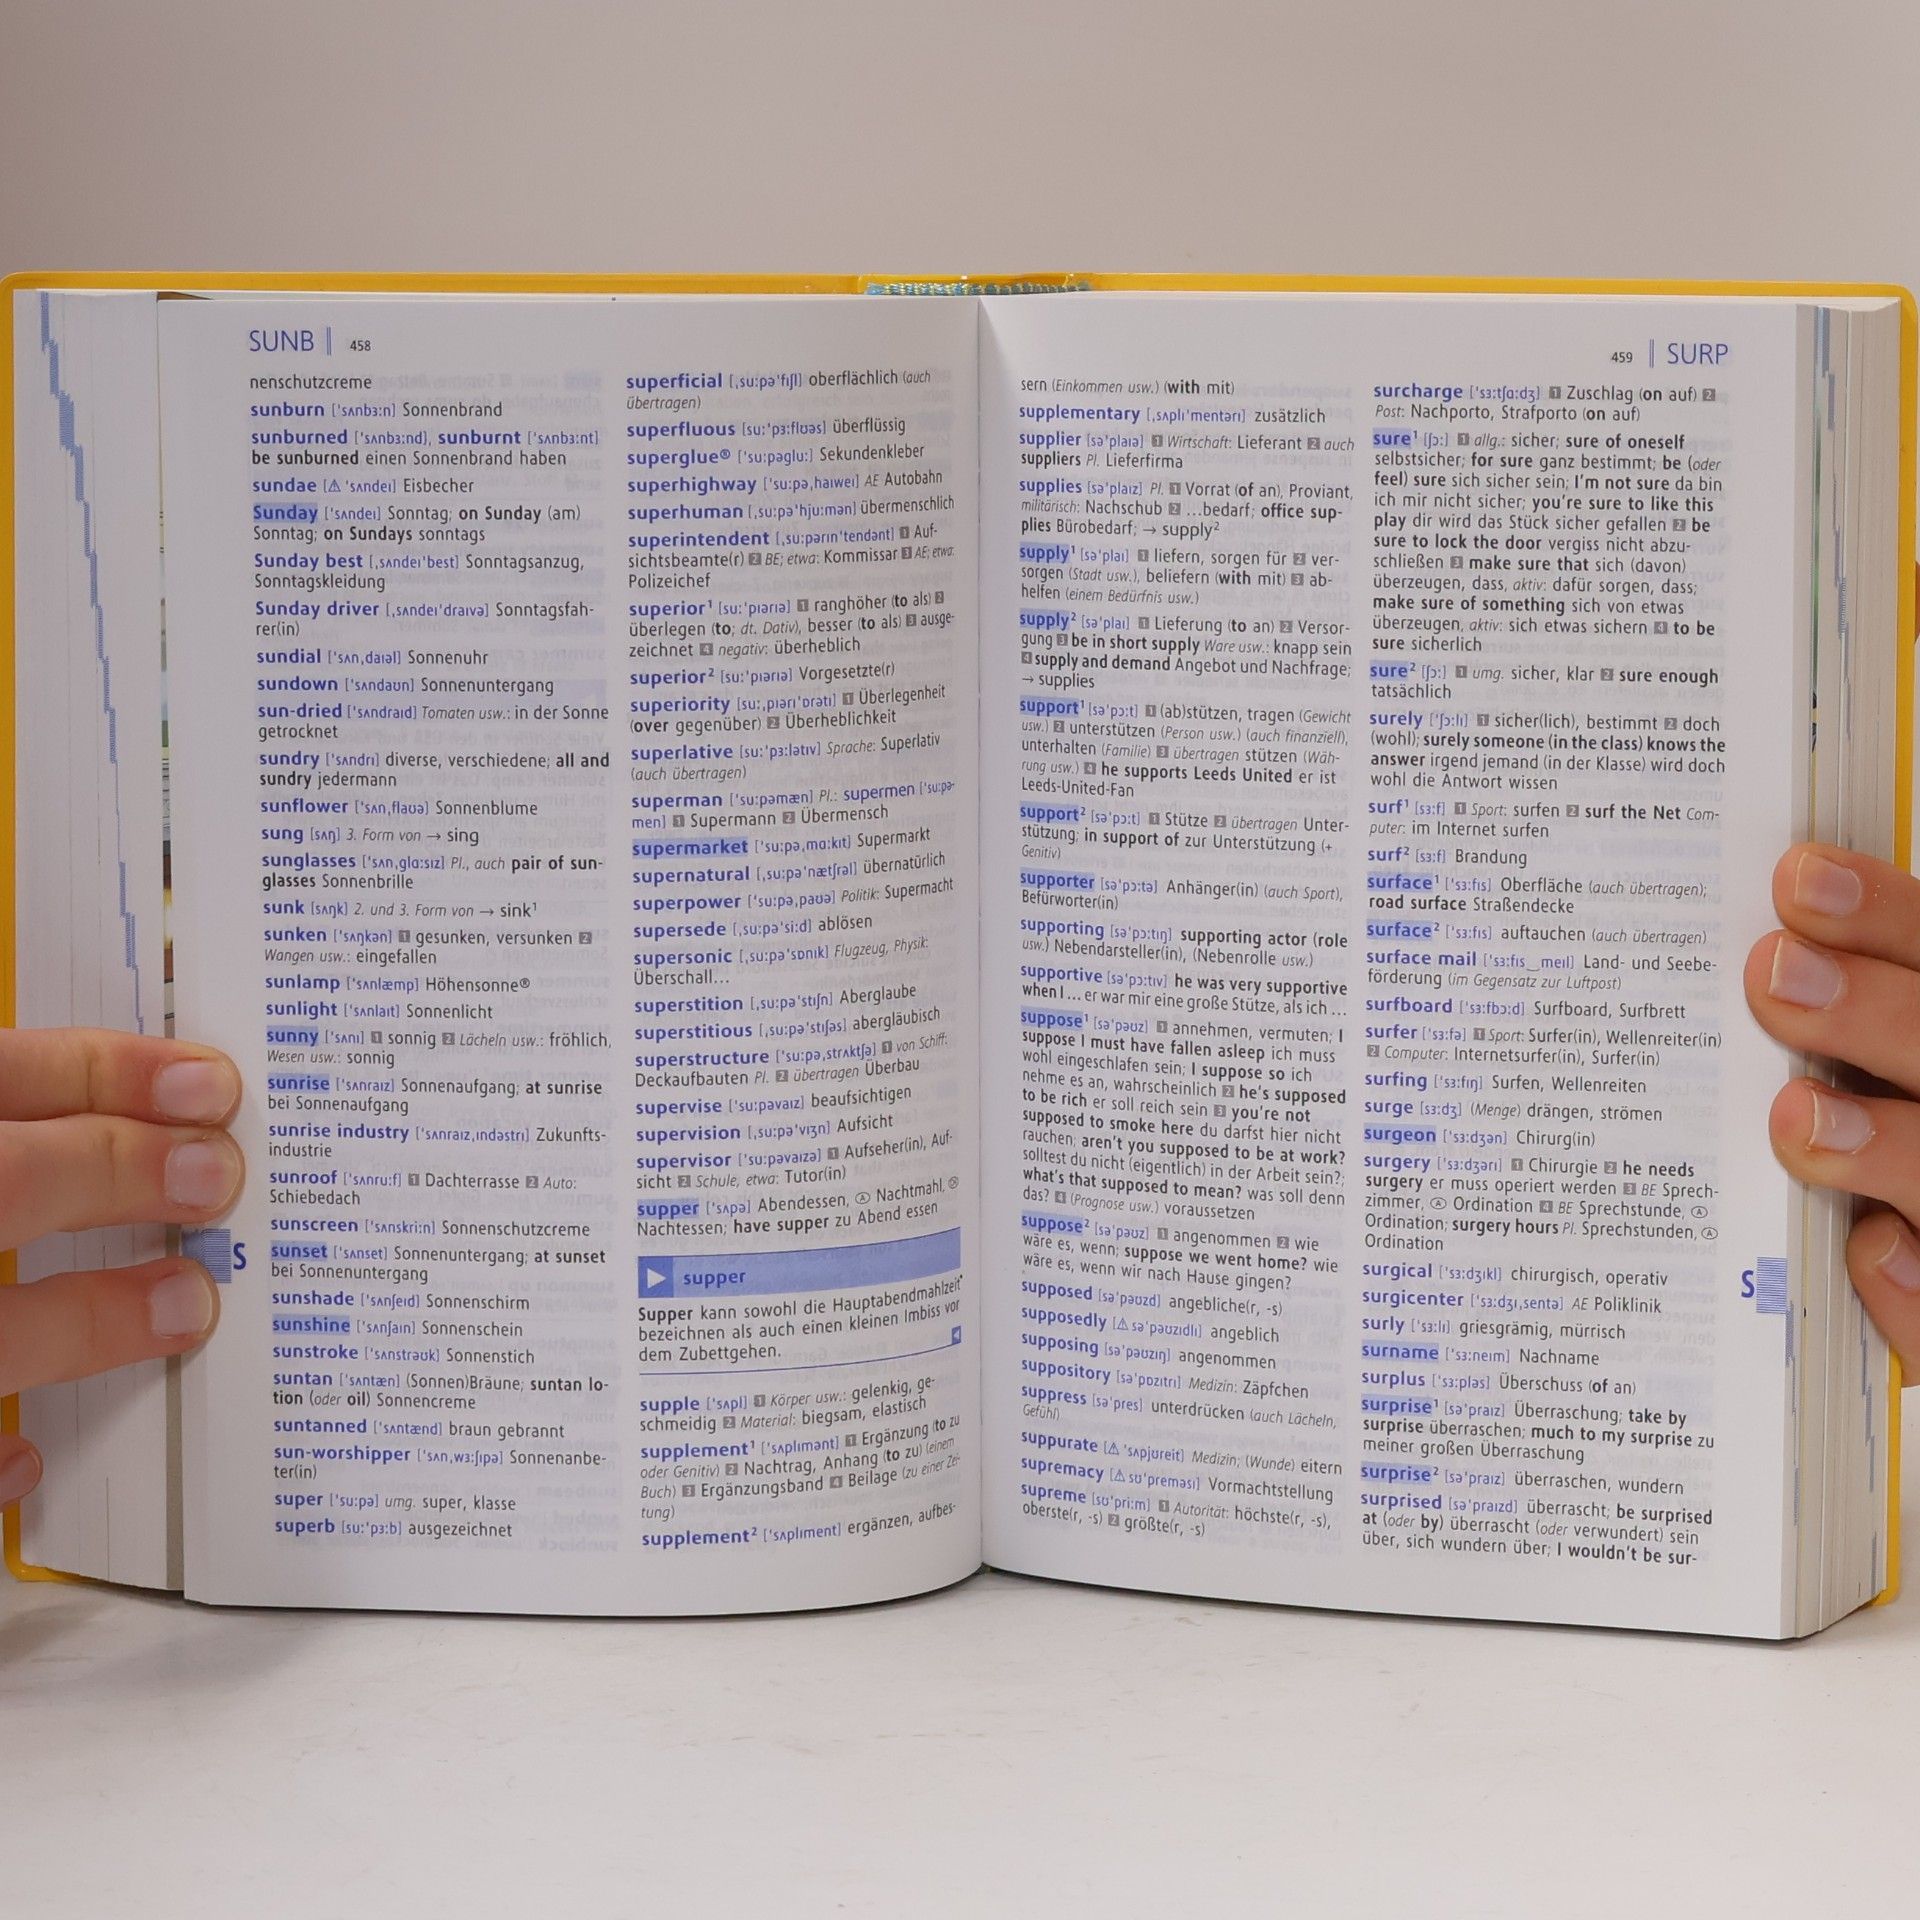 SUNB 458
nenschutzcreme
sunburn ['sʌnbɜːn] Sonnenbrand
sunburned ['sʌnbɜːnd], sunburnt ['sʌnbɜːnt]
be sunburned einen Sonnenbrand haben
sundae [⚠ 'sʌndeɪ] Eisbecher
Sunday ['sʌndeɪ] Sonntag; on Sunday (am)
Sonntag; on Sundays sonntags
Sunday best [ˌsʌndeɪ'best] Sonntagsanzug,
Sonntagskleidung
Sunday driver [ˌsʌndeɪ'draɪvə] Sonntagsfah-
rer(in)
sundial ['sʌnˌdaɪəl] Sonnenuhr
sundown ['sʌndaʊn] Sonnenuntergang
sun-dried ['sʌndraɪd] Tomaten usw.: in der Sonne
getrocknet
sundry ['sʌndrɪ] diverse, verschiedene; all and
sundry jedermann
sunflower ['sʌnˌflaʊə] Sonnenblume
sung [sʌŋ] 3. Form von → sing
sunglasses ['sʌnˌglɑːsɪz] Pl., auch pair of sun-
glasses Sonnenbrille
sunk [sʌŋk] 2. und 3. Form von → sink¹
sunken ['sʌŋkən] 1 gesunken, versunken 2
Wangen usw.: eingefallen
sunlamp ['sʌnlæmp] Höhensonne®
sunlight ['sʌnlaɪt] Sonnenlicht
sunny ['sʌnɪ] 1 sonnig 2 Lächeln usw.: fröhlich,
Wesen usw.: sonnig
sunrise ['sʌnraɪz] Sonnenaufgang; at sunrise
bei Sonnenaufgang
sunrise industry ['sʌnraɪzˌɪndəstrɪ] Zukunfts-
industrie
sunroof ['sʌnruːf] 1 Dachterrasse 2 Auto:
Schiebedach
sunscreen ['sʌnskriːn] Sonnenschutzcreme
sunset ['sʌnset] Sonnenuntergang; at sunset
bei Sonnenuntergang
sunshade ['sʌnʃeɪd] Sonnenschirm
sunshine ['sʌnʃaɪn] Sonnenschein
sunstroke ['sʌnstrəʊk] Sonnenstich
suntan ['sʌntæn] (Sonnen)Bräune; suntan lo-
tion (oder oil) Sonnencreme
suntanned ['sʌntænd] braun gebrannt
sun-worshipper ['sʌnˌwɜːʃɪpə] Sonnenanbe-
ter(in)
super ['suːpə] umg. super, klasse
superb [suː'pɜːb] ausgezeichnet
S
superficial [ˌsuːpə'fɪʃl] oberflächlich (auch
übertragen)
superfluous [suː'pɜːflʊəs] überflüssig
superglue® ['suːpəgluː] Sekundenkleber
superhighway ['suːpəˌhaɪweɪ] AE Autobahn
superhuman [ˌsuːpə'hjuːmən] übermenschlich
superintendent [ˌsuːpərɪn'tendənt] 1 Auf-
sichtsbeamte(r) 2 BE; etwa: Kommissar 3 AE; etwa:
Polizeichef
superior¹ [suː'pɪərɪə] 1 ranghöher (to als) 2
überlegen (to; dt. Dativ), besser (to als) 3 ausge-
zeichnet 4 negativ: überheblich
superior² [suː'pɪərɪə] Vorgesetzte(r)
superiority [suːˌpɪərɪ'ɒrətɪ] 1 Überlegenheit
(over gegenüber) 2 Überheblichkeit
superlative [suː'pɜːlətɪv] Sprache: Superlativ
(auch übertragen)
superman ['suːpəmæn] Pl.: supermen ['suːpə-
men] 1 Supermann 2 Übermensch
supermarket ['suːpəˌmɑːkɪt] Supermarkt
supernatural [ˌsuːpə'nætʃrəl] übernatürlich
superpower ['suːpəˌpaʊə] Politik: Supermacht
supersede [ˌsuːpə'siːd] ablösen
supersonic [ˌsuːpə'sɒnɪk] Flugzeug, Physik:
Überschall…
superstition [ˌsuːpə'stɪʃn] Aberglaube
superstitious [ˌsuːpə'stɪʃəs] abergläubisch
superstructure ['suːpəˌstrʌktʃə] 1 von Schiff:
Deckaufbauten Pl. 2 übertragen Überbau
supervise ['suːpəvaɪz] beaufsichtigen
supervision [ˌsuːpə'vɪʒn] Aufsicht
supervisor ['suːpəvaɪzə] 1 Aufseher(in), Auf-
sicht 2 Schule, etwa: Tutor(in)
supper ['sʌpə] Abendessen, Ⓐ Nachtmahl,
Nachtessen; have supper zu Abend essen
▶ supper
Supper kann sowohl die Hauptabendmahlzeit
bezeichnen als auch einen kleinen Imbiss vor
dem Zubettgehen.
supple ['sʌpl] 1 Körper usw.: gelenkig, ge-
schmeidig 2 Material: biegsam, elastisch
supplement¹ ['sʌplɪmənt] 1 Ergänzung (to zu
oder Genitiv) 2 Nachtrag, Anhang (to zu) (einem
Buch) 3 Ergänzungsband 4 Beilage (zu einer Zei-
tung)
supplement² ['sʌplɪment] ergänzen, aufbes-
459 SURP
sern (Einkommen usw.) (with mit)
supplementary [ˌsʌplɪ'mentərɪ] zusätzlich
supplier [sə'plaɪə] 1 Wirtschaft: Lieferant 2 auch
suppliers Pl. Lieferfirma
supplies [sə'plaɪz] Pl. 1 Vorrat (of an), Proviant,
militärisch: Nachschub 2 …bedarf; office sup-
plies Bürobedarf; → supply²
supply¹ [sə'plaɪ] 1 liefern, sorgen für 2 ver-
sorgen (Stadt usw.), beliefern (with mit) 3 ab-
helfen (einem Bedürfnis usw.)
supply² [sə'plaɪ] 1 Lieferung (to an) 2 Versor-
gung 3 be in short supply Ware usw.: knapp sein
4 supply and demand Angebot und Nachfrage;
→ supplies
support¹ [sə'pɔːt] 1 (ab)stützen, tragen (Gewicht
usw.) 2 unterstützen (Person usw.) (auch finanziell),
unterhalten (Familie) 3 übertragen stützen (Wäh-
rung usw.) 4 he supports Leeds United er ist
Leeds-United-Fan
support² [sə'pɔːt] 1 Stütze 2 übertragen Unter-
stützung; in support of zur Unterstützung (+
Genitiv)
supporter [sə'pɔːtə] Anhänger(in) (auch Sport),
Befürworter(in)
supporting [sə'pɔːtɪŋ] supporting actor (role
usw.) Nebendarsteller(in), (Nebenrolle usw.)
supportive [sə'pɔːtɪv] he was very supportive
when I … er war mir eine große Stütze, als ich …
suppose¹ [sə'pəʊz] 1 annehmen, vermuten; I
suppose I must have fallen asleep ich muss
wohl eingeschlafen sein; I suppose so ich
nehme es an, wahrscheinlich 2 he's supposed
to be rich er soll reich sein 3 you're not
supposed to smoke here du darfst hier nicht
rauchen; aren't you supposed to be at work?
solltest du nicht (eigentlich) in der Arbeit sein?;
what's that supposed to mean? was soll denn
das? 4 (Prognose usw.) voraussetzen
suppose² [sə'pəʊz] 1 angenommen 2 wie
wäre es, wenn; suppose we went home? wie
wäre es, wenn wir nach Hause gingen?
supposed [sə'pəʊzd] angebliche(r, -s)
supposedly [⚠ sə'pəʊzɪdlɪ] angeblich
supposing [sə'pəʊzɪŋ] angenommen
suppository [sə'pɒzɪtrɪ] Medizin: Zäpfchen
suppress [sə'pres] unterdrücken (auch Lächeln,
Gefühl)
suppurate [⚠ 'sʌpjʊreɪt] Medizin; (Wunde) eitern
supremacy [⚠ sʊ'preməsɪ] Vormachtstellung
supreme [sʊ'priːm] 1 Autorität: höchste(r, -s),
oberste(r, -s) 2 größte(r, -s)
surcharge ['sɜːtʃɑːdʒ] 1 Zuschlag (on auf) 2
Post: Nachporto, Strafporto (on auf)
sure¹ [ʃɔː] 1 allg.: sicher; sure of oneself
selbstsicher; for sure ganz bestimmt; be (oder
feel) sure sich sicher sein; I'm not sure da bin
ich mir nicht sicher; you're sure to like this
play dir wird das Stück sicher gefallen 2 be
sure to lock the door vergiss nicht abzu-
schließen 3 make sure that sich (davon)
überzeugen, dass, aktiv: dafür sorgen, dass;
make sure of something sich von etwas
überzeugen, aktiv: sich etwas sichern 4 to be
sure sicherlich
sure² [ʃɔː] 1 umg. sicher, klar 2 sure enough
tatsächlich
surely ['ʃɔːlɪ] 1 sicher(lich), bestimmt 2 doch
(wohl); surely someone (in the class) knows the
answer irgend jemand (in der Klasse) wird doch
wohl die Antwort wissen
surf¹ [sɜːf] 1 Sport: surfen 2 surf the Net Com-
puter: im Internet surfen
surf² [sɜːf] Brandung
surface¹ ['sɜːfɪs] Oberfläche (auch übertragen);
road surface Straßendecke
surface² ['sɜːfɪs] auftauchen (auch übertragen)
surface mail ['sɜːfɪs‿meɪl] Land- und Seebe-
förderung (im Gegensatz zur Luftpost)
surfboard ['sɜːfbɔːd] Surfboard, Surfbrett
surfer ['sɜːfə] 1 Sport: Surfer(in), Wellenreiter(in)
2 Computer: Internetsurfer(in), Surfer(in)
surfing ['sɜːfɪŋ] Surfen, Wellenreiten
surge [sɜːdʒ] (Menge) drängen, strömen
surgeon ['sɜːdʒən] Chirurg(in)
surgery ['sɜːdʒərɪ] 1 Chirurgie 2 he needs
surgery er muss operiert werden 3 BE Sprech-
zimmer, Ⓐ Ordination 4 BE Sprechstunde, Ⓐ
Ordination; surgery hours Pl. Sprechstunden, Ⓐ
Ordination
surgical ['sɜːdʒɪkl] chirurgisch, operativ
surgicenter ['sɜːdʒɪˌsentə] AE Poliklinik
surly ['sɜːlɪ] griesgrämig, mürrisch
surname ['sɜːneɪm] Nachname
surplus ['sɜːpləs] Überschuss (of an)
surprise¹ [sə'praɪz] Überraschung; take by
surprise überraschen; much to my surprise zu
meiner großen Überraschung
surprise² [sə'praɪz] überraschen, wundern
surprised [sə'praɪzd] überrascht; be surprised
at (oder by) überrascht (oder verwundert) sein
über, sich wundern über; I wouldn't be sur-
S